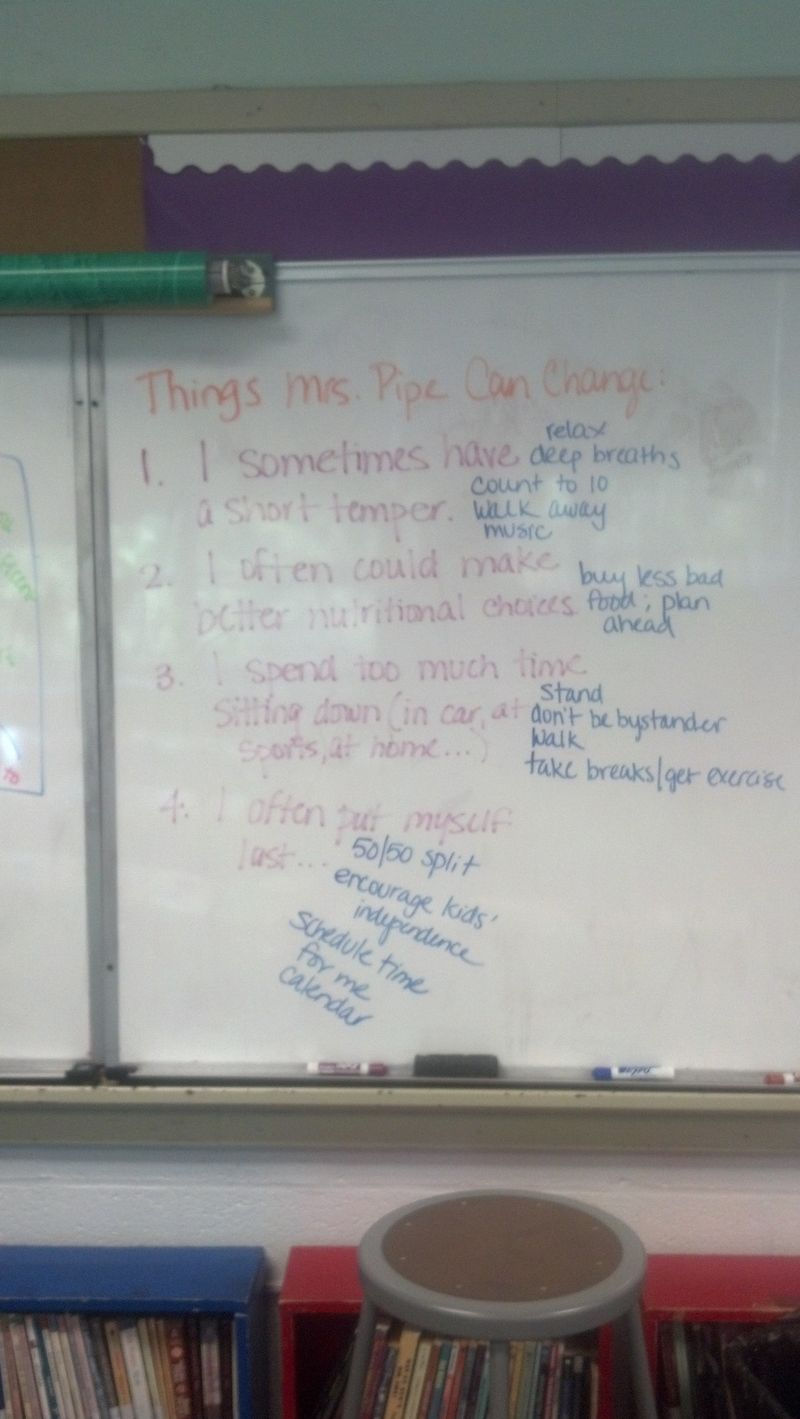 Things Mrs. Pipe Can Change:
1. I sometimes have
a short temper.
relax
deep breaths
count to 10
walk away
music
2. I often could make
better nutritional choices
buy less bad
food; plan
ahead
3. I spend too much time
sitting down (in car, at
sports, at home...)
Stand
don't be bystander
Walk
take breaks/get exercise
4. I often put myself
last...
50/50 split
encourage kids'
independence
Schedule time
for me
calendar